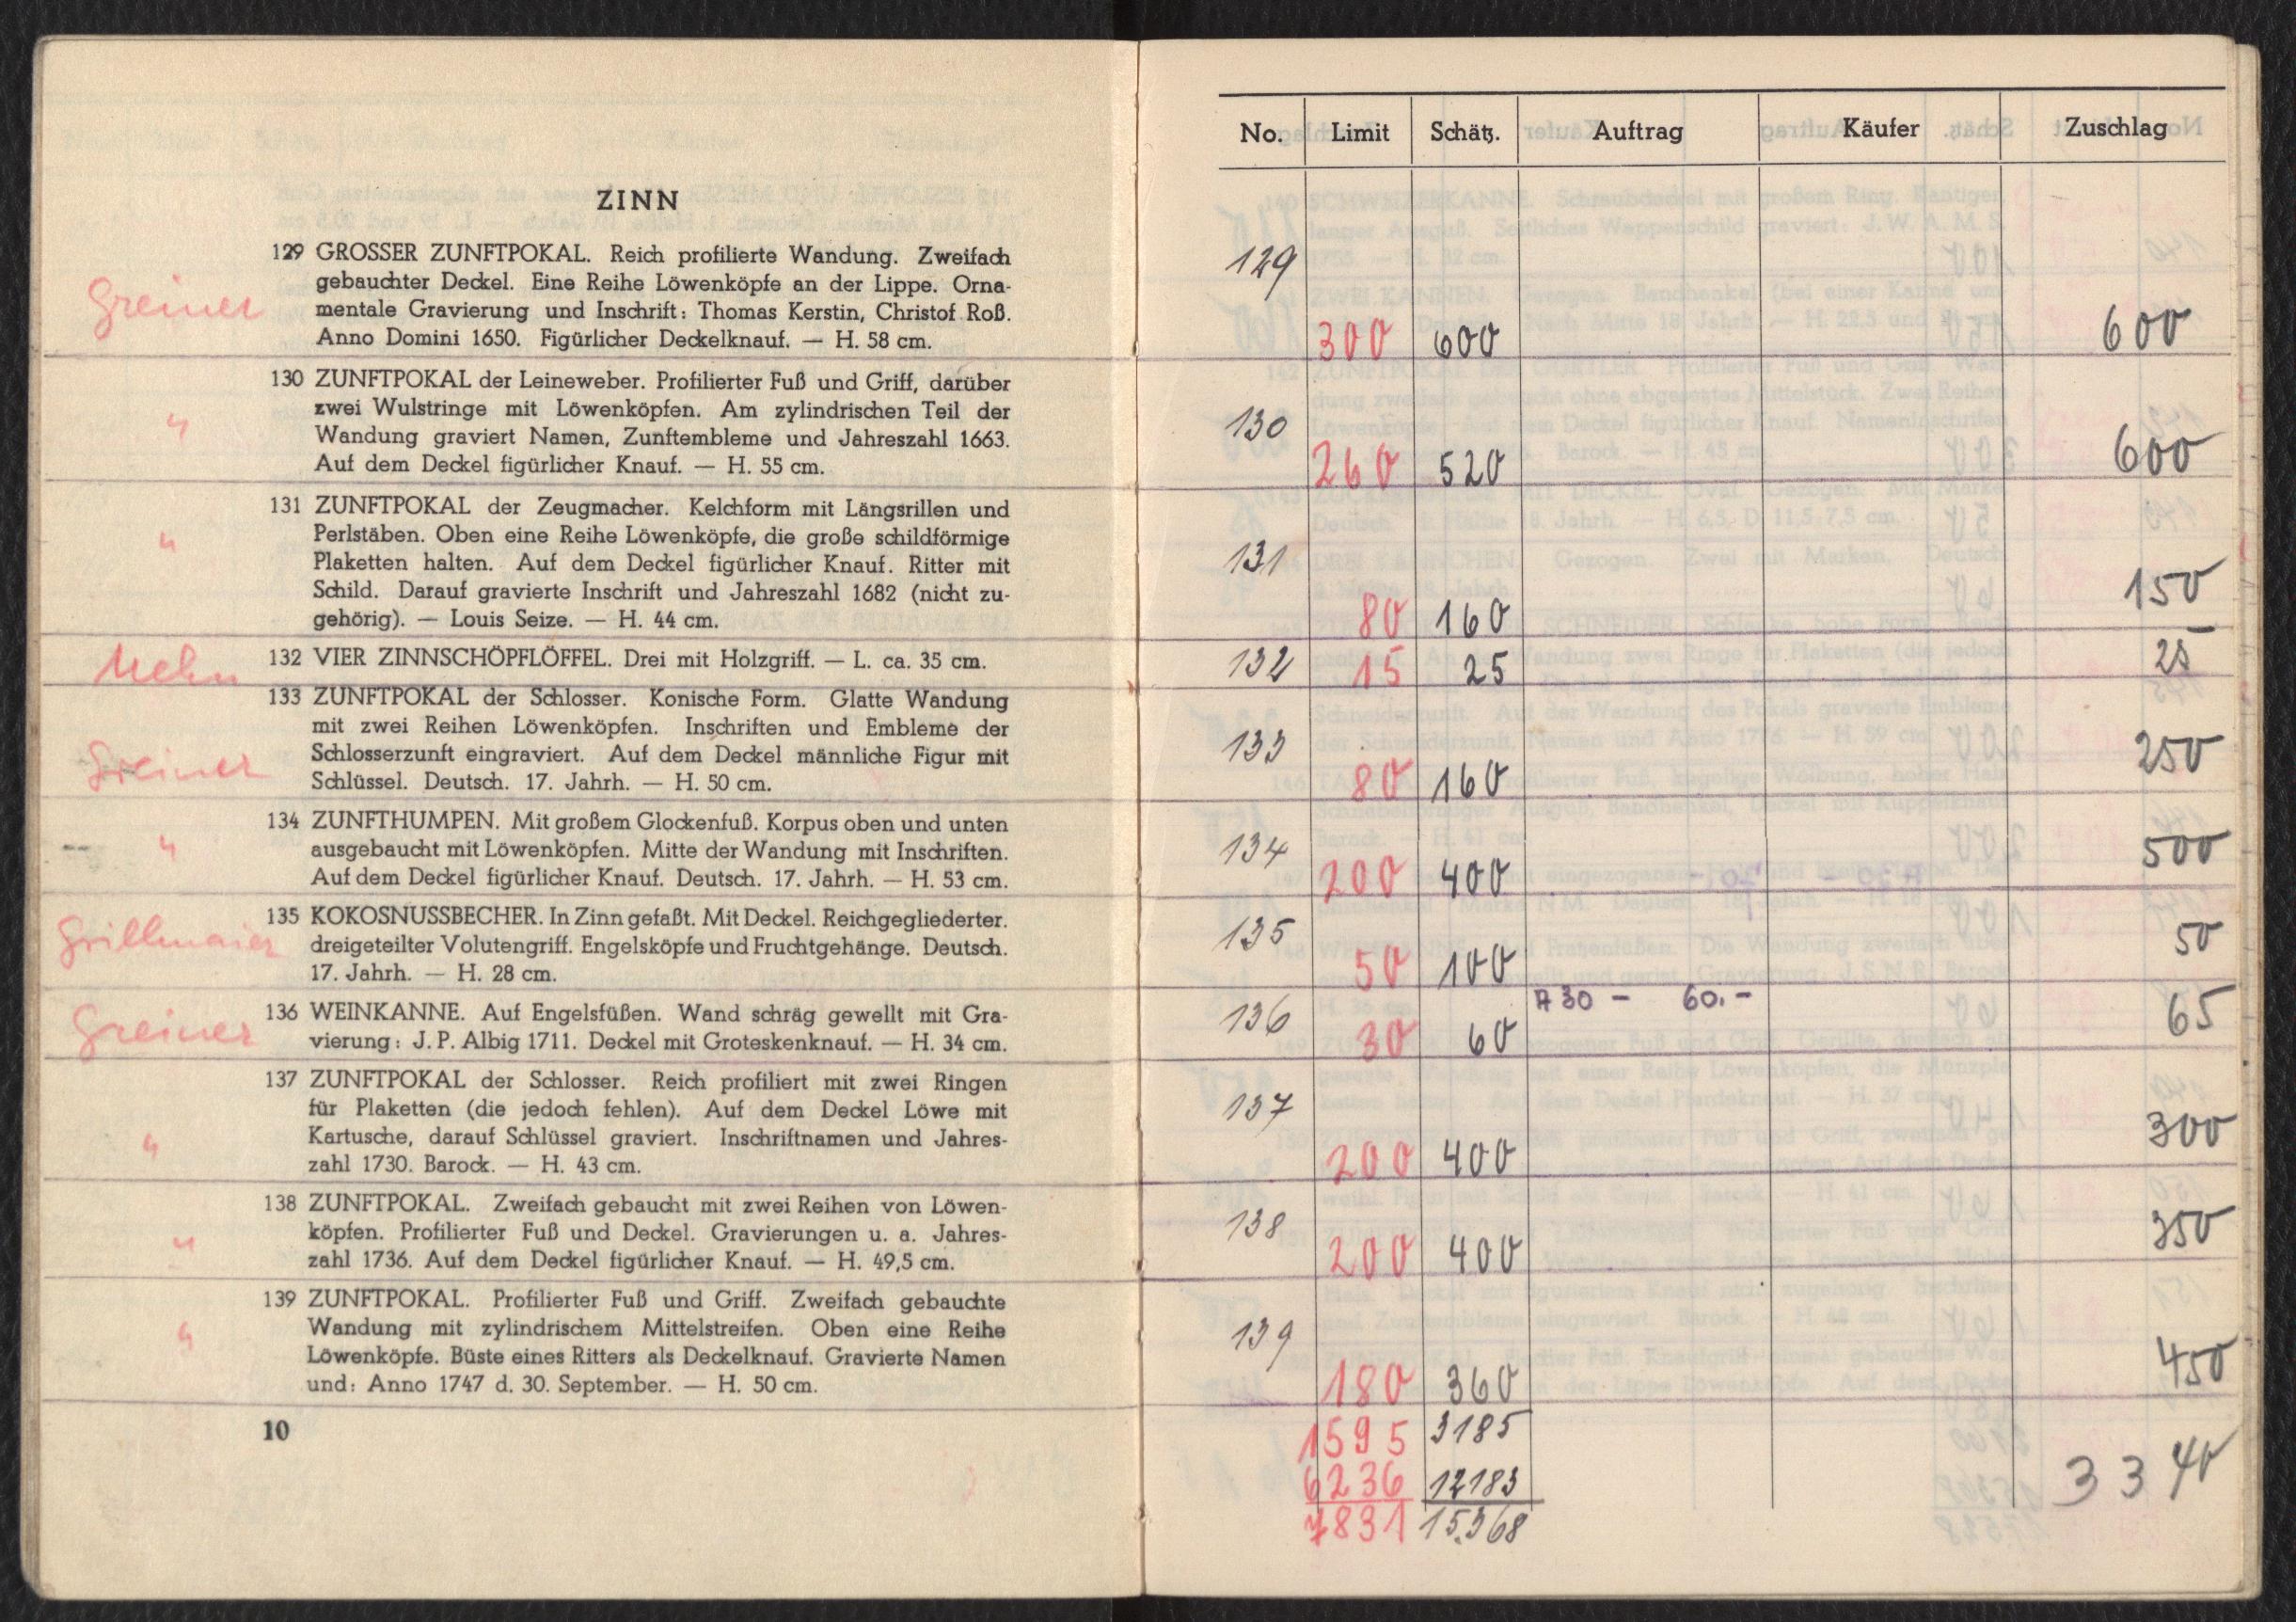 ZINN
129 GROSSER ZUNFTPOKAL. Reich profilierte Wandung. Zweifach
gebauchter Deckel. Eine Reihe Löwenköpfe an der Lippe. Orna-
Greiner
mentale Gravierung und Inschrift: Thomas Kerstin, Christof Roß.
Anno Domini 1650. Figürlicher Deckelknauf. — H. 58 cm.
130 ZUNFTPOKAL der Leineweber. Profilierter Fuß und Griff, darüber
zwei Wulstringe mit Löwenköpfen. Am zylindrischen Teil der
"
Wandung graviert Namen, Zunftembleme und Jahreszahl 1663.
Auf dem Deckel figürlicher Knauf. — H. 55 cm.
131 ZUNFTPOKAL der Zeugmacher. Kelchform mit Längsrillen und
Perlstäben. Oben eine Reihe Löwenköpfe, die große schildförmige
"
Plaketten halten. Auf dem Deckel figürlicher Knauf. Ritter mit
Schild. Darauf gravierte Inschrift und Jahreszahl 1682 (nicht zu-
gehörig). — Louis Seize. — H. 44 cm.
132 VIER ZINNSCHÖPFLÖFFEL. Drei mit Holzgriff. — L. ca. 35 cm.
133 ZUNFTPOKAL der Schlosser. Konische Form. Glatte Wandung
mit zwei Reihen Löwenköpfen. Inschriften und Embleme der
Greiner
Schlosserzunft eingraviert. Auf dem Deckel männliche Figur mit
Schlüssel. Deutsch. 17. Jahrh. — H. 50 cm.
134 ZUNFTHUMPEN. Mit großem Glockenfuß. Korpus oben und unten
"
ausgebaucht mit Löwenköpfen. Mitte der Wandung mit Inschriften.
Auf dem Deckel figürlicher Knauf. Deutsch. 17. Jahrh. — H. 53 cm.
135 KOKOSNUSSBECHER. In Zinn gefaßt. Mit Deckel. Reichgegliederter.
Grillmaier
dreigeteilter Volutengriff. Engelsköpfe und Fruchtgehänge. Deutsch.
17. Jahrh. — H. 28 cm.
136 WEINKANNE. Auf Engelsfüßen. Wand schräg gewellt mit Gra-
Greiner
vierung: J. P. Albig 1711. Deckel mit Groteskenknauf. — H. 34 cm.
137 ZUNFTPOKAL der Schlosser. Reich profiliert mit zwei Ringen
für Plaketten (die jedoch fehlen). Auf dem Deckel Löwe mit
"
Kartusche, darauf Schlüssel graviert. Inschriftnamen und Jahres-
zahl 1730. Barock. — H. 43 cm.
138 ZUNFTPOKAL. Zweifach gebaucht mit zwei Reihen von Löwen-
"
köpfen. Profilierter Fuß und Deckel. Gravierungen u. a. Jahres-
zahl 1736. Auf dem Deckel figürlicher Knauf. — H. 49,5 cm.
139 ZUNFTPOKAL. Profilierter Fuß und Griff. Zweifach gebauchte
"
Wandung mit zylindrischem Mittelstreifen. Oben eine Reihe
Löwenköpfe. Büste eines Ritters als Deckelknauf. Gravierte Namen
und: Anno 1747 d. 30. September. — H. 50 cm.
10
No. Limit Schätz. Auftrag Käufer Zuschlag
129 300 600 600
130 260 520 600
131 80 160 150
132 15 25 25
133 80 160 250
134 200 400 500
135 50 100 50
136 30 60 A 30 - 60.- 65
137 200 400 300
138 200 400 350
139 180 360 450
1595 3185
6236 12183 3340
7831 15.368